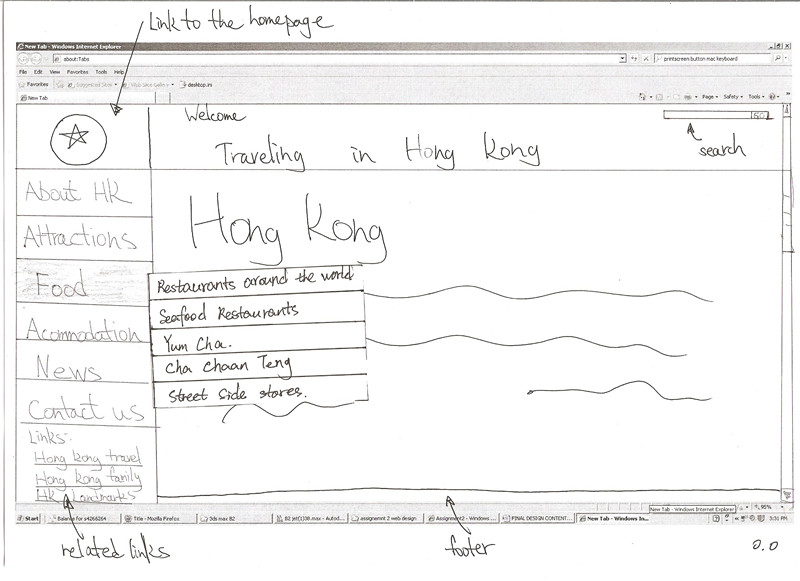 Link to the homepage
New Tab - Windows Internet Explorer
about:Tabs
printscreen button mac keyboard
File Edit View Favorites Tools Help
Favorites Suggested Sites desktop.ini
New Tab
Page Safety Tools
Welcome
Traveling in Hong Kong
GO
search
About HK
Attractions
Food
Acommodation
News
Contact us
Links:
Hong Kong travel
Hong Kong family
HK Landmarks
Hong Kong
Restaurants around the world
Seafood Restaurants
Yum Cha.
Cha Chaan Teng
Street Side stores.
New Tab - Windows Internet Explorer
95%
Start
Balance for s4266264
Title - Mozilla Firefox
3ds max BZ
BZ jst(1)38.max - Autod...
assignemnt 2 web design
Assignment2 - Windows ...
FINAL DESIGN CONTENT...
New Tab - Windows In...
3:31 PM
related links
footer
0.0